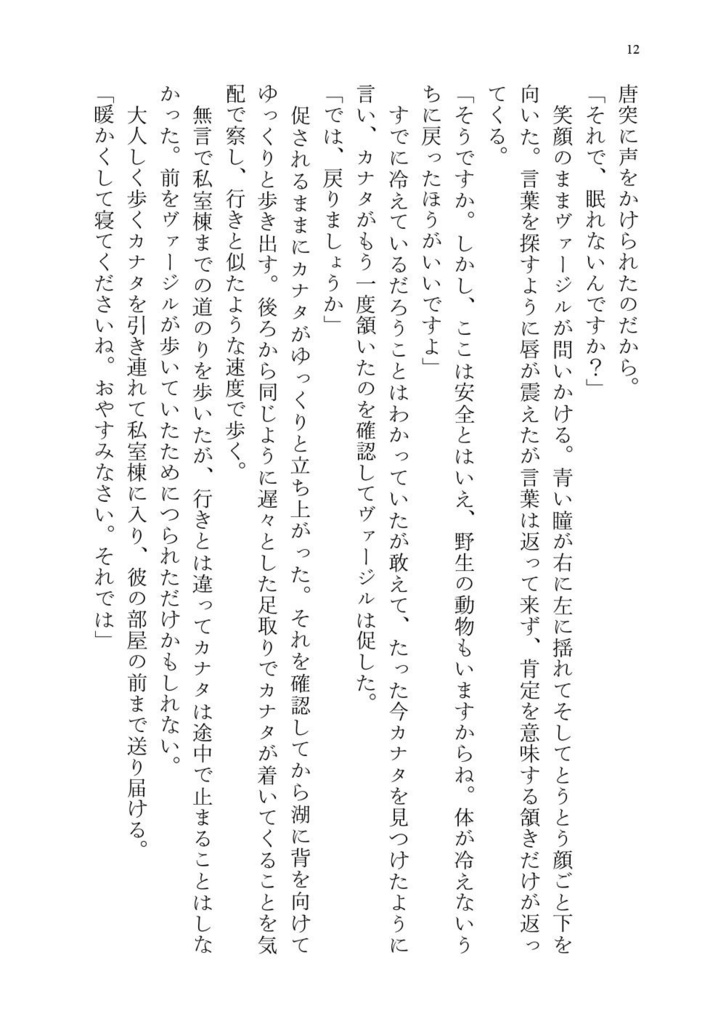 12
唐突に声をかけられたのだから。
「それで、眠れないんですか？」
笑顔のままヴァージルが問いかける。青い瞳が右に左に揺れてそしてとうとう顔ごと下を
向いた。言葉を探すように唇が震えたが言葉は返って来ず、肯定を意味する頷きだけが返っ
てくる。
「そうですか。しかし、ここは安全とはいえ、野生の動物もいますからね。体が冷えないう
ちに戻ったほうがいいですよ」
すでに冷えているだろうことはわかっていたが敢えて、たった今カナタを見つけたように
言い、カナタがもう一度頷いたのを確認してヴァージルは促した。
「では、戻りましょうか」
促されるままにカナタがゆっくりと立ち上がった。それを確認してから湖に背を向けて
ゆっくりと歩き出す。後ろから同じように遅々とした足取りでカナタが着いてくることを気
配で察し、行きと似たような速度で歩く。
無言で私室棟までの道のりを歩いたが、行きとは違ってカナタは途中で止まることはしな
かった。前をヴァージルが歩いていたためにつられただけかもしれない。
大人しく歩くカナタを引き連れて私室棟に入り、彼の部屋の前まで送り届ける。
「暖かくして寝てくださいね。おやすみなさい。それでは」